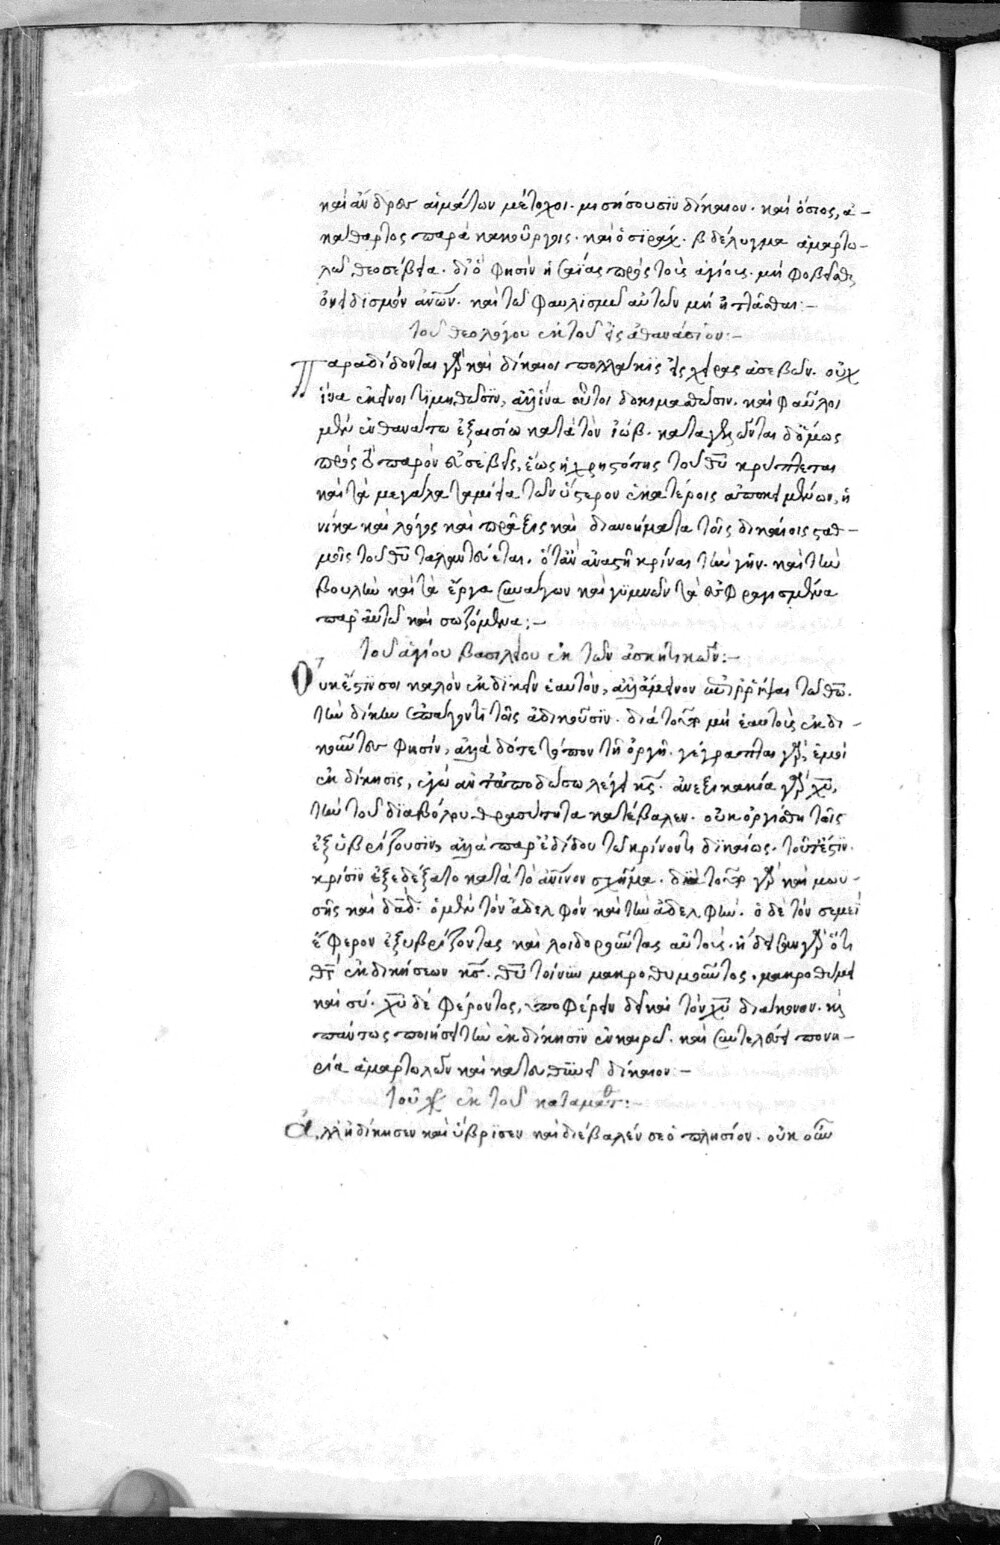 καὶ ἄνδρες αἱμάτων μέτοχοι· μισήσουσϊν δίκαιον· καὶ ὅσιος, ἀ-
κάθαρτος παρὰ κακούργοις· καὶ ὁ σϊράχ· βδέλυγμα ἁμαρτω-
λῶ θεοσέβεια· διὸ φησὶν ἡσαΐας πρὸς τοὺς ἁγίους· μὴ φοβεῖσθε
ὀνειδισμὸν ἀνων· καὶ τῶ φαυλισμῶ αὐτῶν μὴ ἡττᾶσθαι:-
τοῦ θεολόγου ἐκ τοῦ εἰς ἀθανάσιον:-
Παραδίδονται γὰρ καὶ δίκαιοι πολλάκις εἰς χεῖρας ἀσεβῶν· οὐχ
ἵνα ἐκεῖνοι τϊμηθῶσϊν, ἀλλ' ἵνα οὗτοι δοκιμασθῶσιν· καὶ φαῦλοι
μὲν ἐν θανάτω ἐξαισίω κατὰ τὸν ἰώβ· καταγελῶνται δ' ὅμως
πρὸς τὸ παρὸν εὐσεβεῖς, ἕως ἡ χρηστότης τοῦ θυ κρύπτεται
καὶ τὰ μεγάλα ταμιεῖα τῶν ὕστερον ἑκατέροις ἀποκειμένων, ἡ-
νίκα καὶ λόγος καὶ πρᾶξις καὶ διανοήματα τοῖς δικαίοις σταθ-
μοῖς τοῦ θυ ταλαντεύεται, ὅταν ἀναστῆ κρίναι τὴν γῆν· καὶ τὴν
βουλὴν καὶ τὰ ἔργα συνάγων καὶ γυμνῶν τὰ ἐσφραγισμένα
παρ' αὐτῶ καὶ σωζόμενα:-
τοῦ ἁγίου βασιλείου ἐκ τῶν ἀσκητικῶν:-
Οὐκ ἔστϊν σοι καλὸν ἐκδϊκεῖν ἑαυτὸν, ἀλλ' ἄμεινον ἐπιρρίψαι τῶ θω·
τὴν δίκην ἐπάγοντι τοῖς ἀδικοῦσϊν· διὰ τοῦτο μὴ ἑαυτοὺς ἐκδι-
κοῦντες φησὶν, ἀλλὰ δότε τόπον τῆ ὀργῆ· γέγραπται γὰρ, ἐμοὶ
ἐκδίκησις, ἐγὼ ἀνταποδώσω λέγει κς· ἀνεξικακία γὰρ χυ,
τὴν τοῦ διαβόλου θρασύτητα κατέβαλεν· οὐκ ὠργίσθη τοῖς
ἐξυβρίζουσϊν, ἀλλὰ παρεδίδου τῶ κρίνοντι δϊκαίως· τοῦτέστϊν·
κρίσϊν ἐξεδέξατο κατὰ τὸ ἀνινον σχῆμα· διὰ τοῦτο γὰρ καὶ μωυ-
σῆς καὶ δαδ· ὁ μὲν τὸν ἀδελφὸν καὶ τὴν ἀδελφήν· ὁ δὲ τὸν σεμεῒ
ἔφερον ἐξυβρίζοντας καὶ λοιδοροῦντας αὐτούς· ἤδεισαν γὰρ ὅτι
θς ἐκδικήσεων κς· θυ τοίνυν μακροθυμοῦντος, μακροθύμει
καὶ σύ· χυ δὲ φέροντος, ὑποφέρειν δεῖ καὶ τὸν χυ διάκονον· κς
πάντως ποιήσει τὴν ἐκδίκησϊν ἐν καιρῶ· καὶ συντελεσθεῖ πονη-
ρία ἁμαρτωλῶν καὶ κατευθυνεῖ δίκαιον-
τοῦ χρ ἐκ τοῦ κατὰ ματθ:-
Ἀλλ' ἠδίκησεν καὶ ὕβρϊσεν καὶ διέβαλέν σε ὁ πλησίον· οὐκοῦν